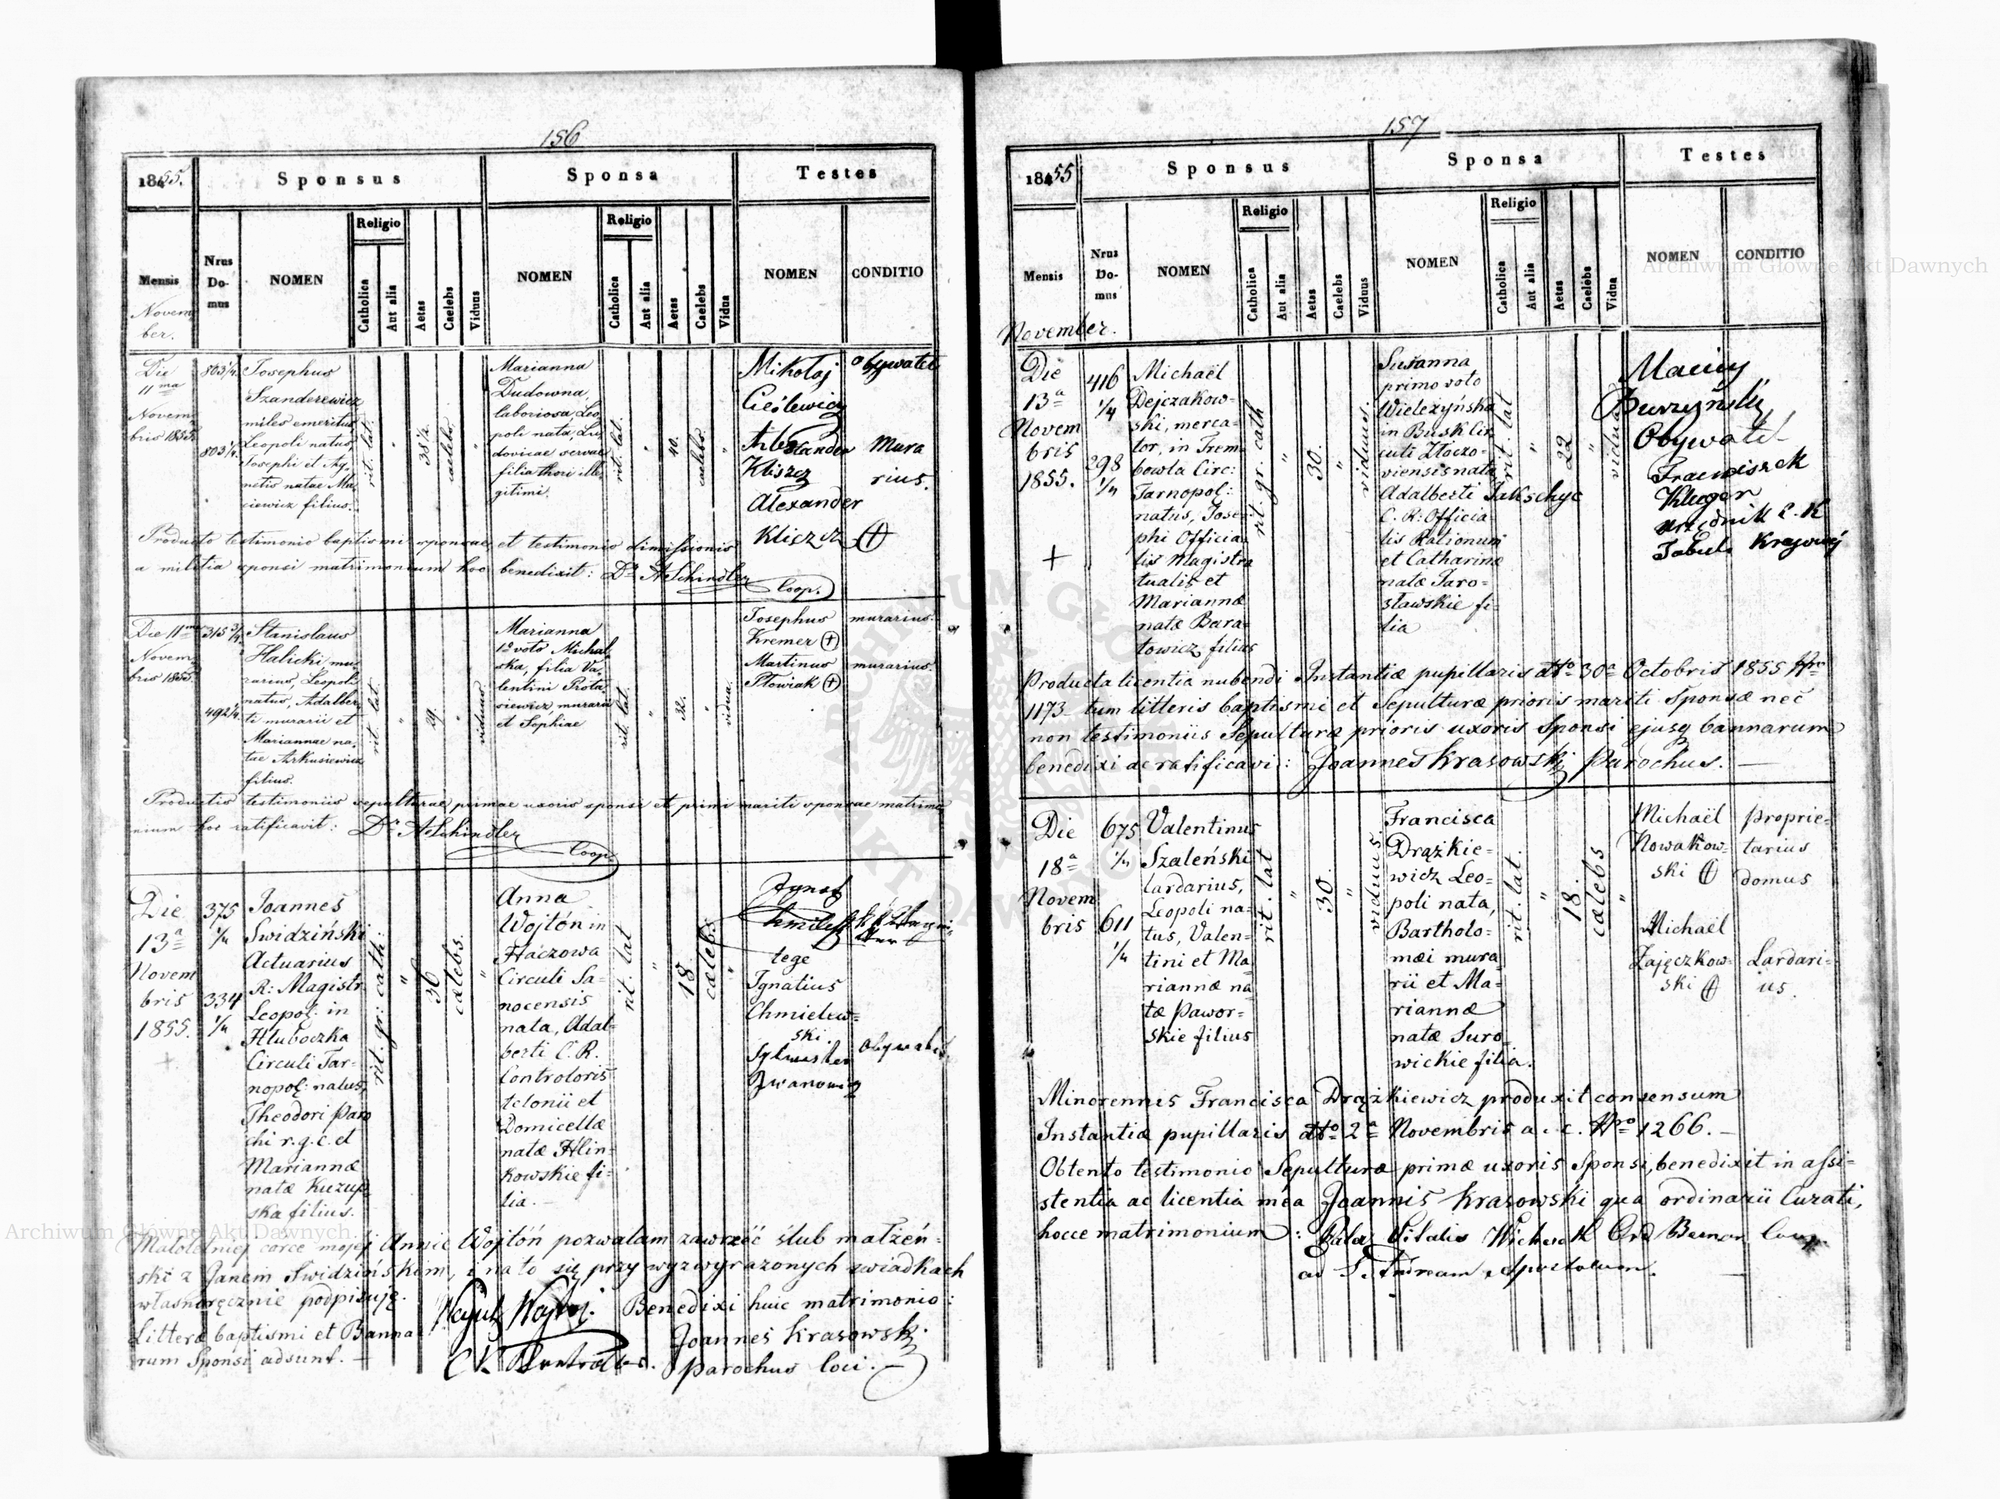 156
1855.
Sponsus
Sponsa
Testes
Mensis
Novem
ber.
Nrus
Do-
mus
NOMEN
Religio
Catholica
Aut alia
Aetas
Caelebs
Viduus
NOMEN
Religio
Catholica
Aut alia
Aetas
Caelebs
Vidua
NOMEN
CONDITIO
Die
11ma
Novem
bris 1855.
803 1/4.
803 1/4.
Josephus
Szanderewicz
miles emeritus
Leopoli natus,
Josephi et Ag-
netis natae Ma-
ciewicz filius.
rit. lat.
"
38 1/2.
caelebs.
"
Marianna
Dudowna
laboriosa, Leo-
poli nata, Lu-
dovicae servae
filia thori ille-
gitimi.
rit. lat.
"
40.
caelebs.
"
Mikołaj
Cieślewicz
Obywatel
Kliszcz
Mura
rius.
Alexander
Kliszcz
Producto testimonio baptismi sponsae et testimonio dimissionis
a militia sponsi matrimonium hoc benedixit: Dr. ASchindler
Coop.
Die 11ma
Novem
bris 1855.
315 3/4
492 1/4.
Stanislaus
Halicki, mu-
rarius, Leopoli
natus, Adalber-
ti murarii et
Mariannae na-
tae Arkusiewicz
filius.
rit. lat.
"
29.
"
viduus.
Marianna
1o voto Michal-
ska, filia Va-
lentini Prota-
siewicz, murarii
et Sophiae
rit. lat.
"
32.
"
vidua.
Josephus
Kremer
murarius.
Martinus
Słowiak
murarius.
Productis testimoniis sepulturae primae uxoris sponsi et primi mariti sponsae matrimo
nium hoc ratificavit: Dr. ASchindler
Coop.
Die
13a
Novem
bris
1855.
375
1/4
334
1/4
Joannes
Swidziński
Actuarius
R: Magistr:
Leopol: in
Hluboczka
Circuli Tar-
nopol: natus,
Theodori Paro
chi r. g. c. et
Mariannæ
natæ Kuzup-
ska filius.
rit. gr: cath:
"
36
cælebs.
"
Anna
Wojtón in
Haczowa
Circuli Sa-
nocensis
nata, Adal-
berti C. R.
Controloris
telonii et
Domicellæ
natæ Hlin-
kowskie fi-
lia.
rit. lat
"
18.
cælebs.
"
tege
Ignatius
Chmielew-
ski.
Sylwester
Iwanowicz
Obywatel
Małoletniej corce mojej Annie Wojtóń pozwalam zawrzeć ślub małżeń-
ski z Janem Swidzińskim, i na to się przy wyzwyrazonych swiadkach
własnoręcznie podpisuję.
Benedixi huic matrimonio:
Litteræ baptismi et Banna-
rum Sponsi adsunt.
Joannes Krasowski
parochus loci.
157
1855
Sponsus
Sponsa
Testes
Mensis
November.
Nrus
Do-
mus
NOMEN
Religio
Catholica
Aut alia
Aetas
Caelebs
Viduus
NOMEN
Religio
Catholica
Aut alia
Aetas
Caelebs
Vidua
NOMEN
CONDITIO
Die
13a
Novem
bris
1855.
416
1/4
298
1/4
Michaël
Dejczakow-
ski, merca-
tor, in Trem-
bowla Circ:
Tarnopol:
natus, Jose-
phi Officia-
lis Magistra
tualis et
Mariannæ
natæ Bara-
towicz filius
rit. gr. cath
"
30.
"
viduus.
Susanna
primo voto
Wielezyńska
in Busk Cir-
culi Złoczo-
viensis nata
Adalberti Jakschye
C. R: Officia-
lis Rationum
et Catharinæ
natæ Jaro-
sławskie fi-
lia
rit. lat
"
22
"
vidua
Maciej
Burzyński
Obywatel
Franciszek
Kluger
urzędnik c. k
Tabuli Krajowej
Producta licentia nubendi Instantiæ pupillaris dto 30a Octobris 1855 Nro
1173 tum litteris baptismi et Sepulturæ prioris mariti Sponsæ nec
non testimoniis Sepulturæ prioris uxoris Sponsi ejusq bannarum
benedixi ac ratificavi: Joannes Krasowski Parochus.
Die
18a
Novem
bris
675
1/4
611
1/4
Valentinus
Szaleński
lardarius,
Leopoli na-
tus, Valen-
tini et Ma-
riannæ na-
tæ Pawor-
skie filius
rit. lat
"
30.
"
viduus
Francisca
Drążkie-
wicz Leo-
poli nata,
Bartholo-
mæi mura-
rii et Ma-
riannæ
natæ Suro-
wickie filia.
rit. lat.
"
18.
cælebs
"
Michaël
Nowakow-
ski
proprie-
tarius
domus
Michaël
Zajęczkow-
ski
Lardari-
us.
Minorennis Francisca Drążkiewicz produxit consensum
Instantiæ pupillaris dto 2a Novembris a. c. Nro 1266.
Obtento testimonio Sepulturæ primæ uxoris Sponsi, benedixit in assi-
stentia ac licentia mea Joannis Krasowski qua ordinarii Curati,
hocce matrimonium: Vitalis
ad S. Andream Apostolum.
Archiwum Główne Akt Dawnych
Archiwum Główne Akt Dawnych
ARCHIWUM GŁÓWNE AKT DAWNYCH